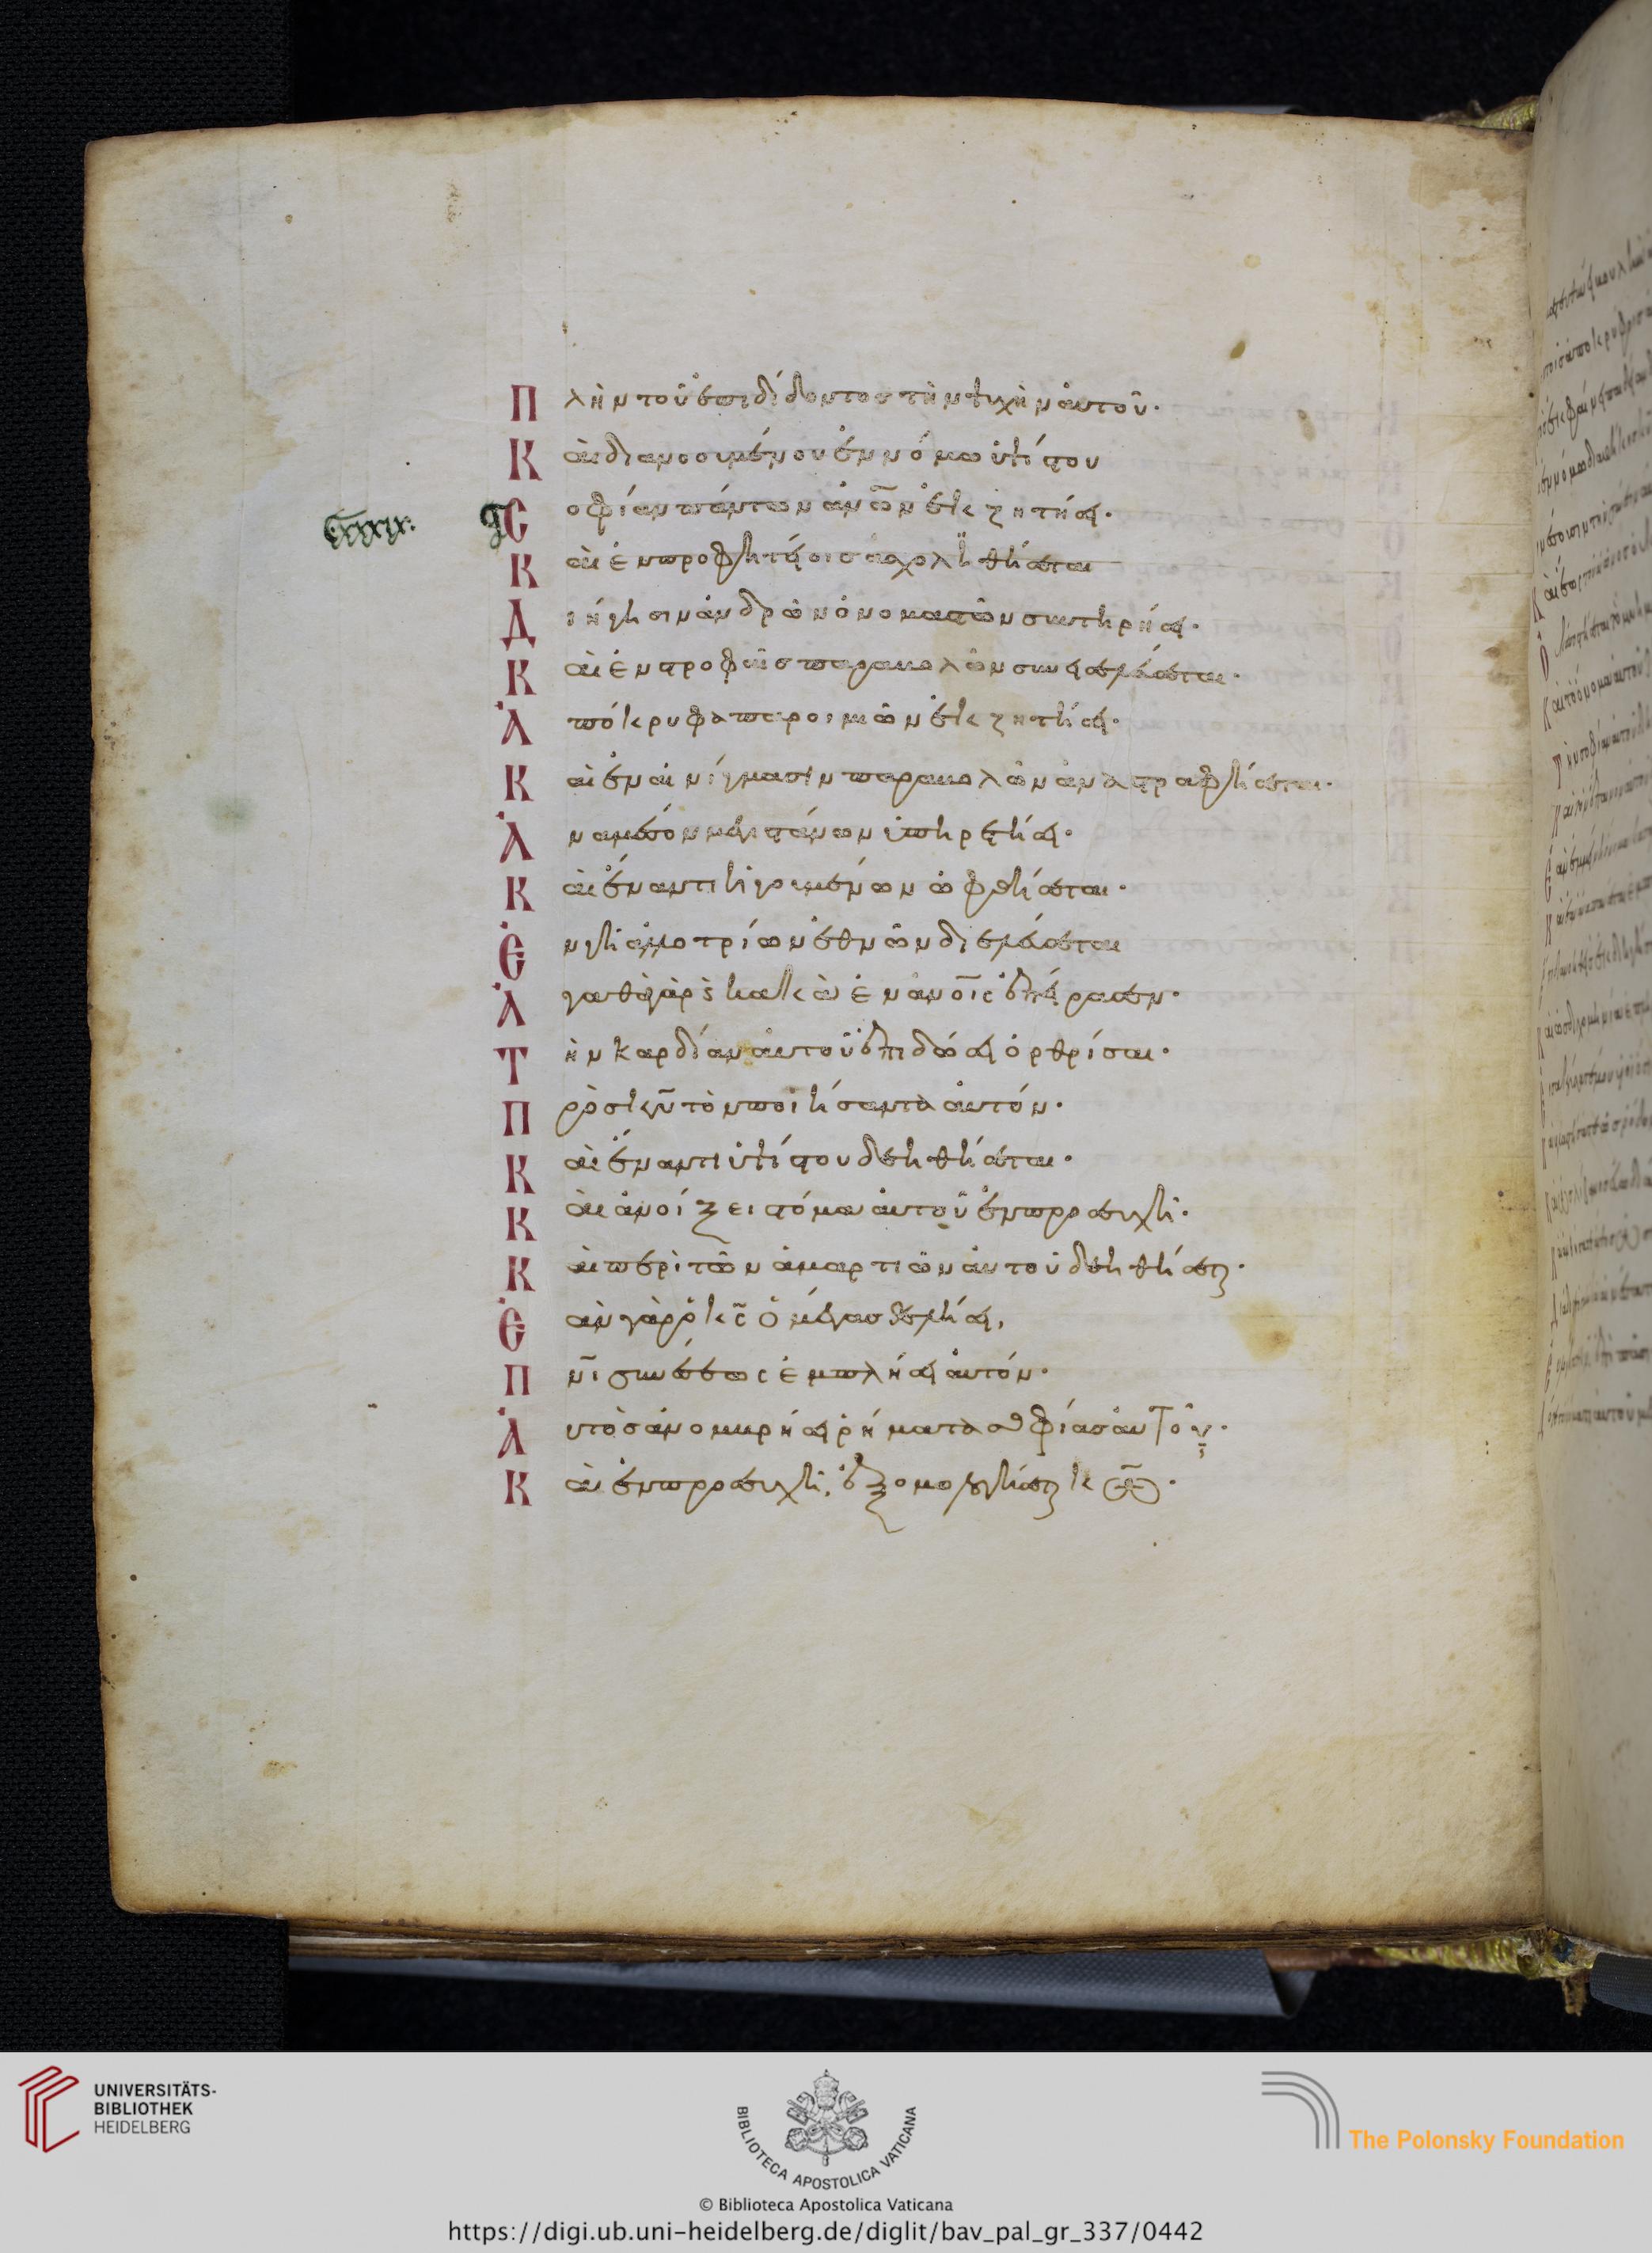 Πλὴν τοῦ ἐπιδίδοντος τὴν ψυχὴν αὐτοῦ·
Καὶ διανοουμένου ἐν νόμω ὑψίστου
cxxxix. Σοφίαν πάντων ἀν̅ω̅ν ἐκζητήσει·
Καὶ ἐν προφητείοις ἀσχοληθήσεται
Διήγησιν ἀνδρῶν ὀνομαστῶν συντηρήσει·
Καὶ ἐν στροφαῖς παραβολῶν συνεσελεύσεται·
Ἀπόκρυφα παροιμιῶν ἐκζητήσει·
Καὶ ἐν αἰνίγμασιν παραβολῶν ἀναστραφήσεται·
Ἀναμέσον μεγιστάνων ὑπηρετήσει·
Καὶ ἔναντι ἡγουμένων ὀφθήσεται·
Ἐν γῆ ἀλλοτρίων ἐθνῶν διελεύσεται
Ἀγαθὰ γὰρ καὶ κακὰ ἐν ἀν̅ο̅ις ἐπείρασεν·
Τὴν καρδίαν αὐτοῦ ἐπιδώσει ὀρθρίσαι·
Πρὸς κ̅ν̅ τὸν ποιήσαντα αὐτόν·
Καὶ ἔναντι ὑψίστου δεηθήσεται·
Καὶ ἀνοίξει στόμα αὐτοῦ ἐν προσευχῆ·
Καὶ περὶ τῶν ἁμαρτιῶν αὐτοῦ δεηθήσεται·
Ἐὰν γὰρ ὁ κ̅ς̅ ὁ μέγας θελήσει,
Πν̅ι συνέσεως ἐμπλήσει αὐτόν·
Αὐτὸς ἀνομβρήσει ῥήματα σοφίας αὐτοῦ·
Καὶ ἐν προσευχῆ ἐξομολογήσεται κ̅ω̅·
UNIVERSITÄTS-
BIBLIOTHEK
HEIDELBERG
BIBLIOTECA APOSTOLICA VATICANA
The Polonsky Foundation
© Biblioteca Apostolica Vaticana
https://digi.ub.uni-heidelberg.de/diglit/bav_pal_gr_337/0442